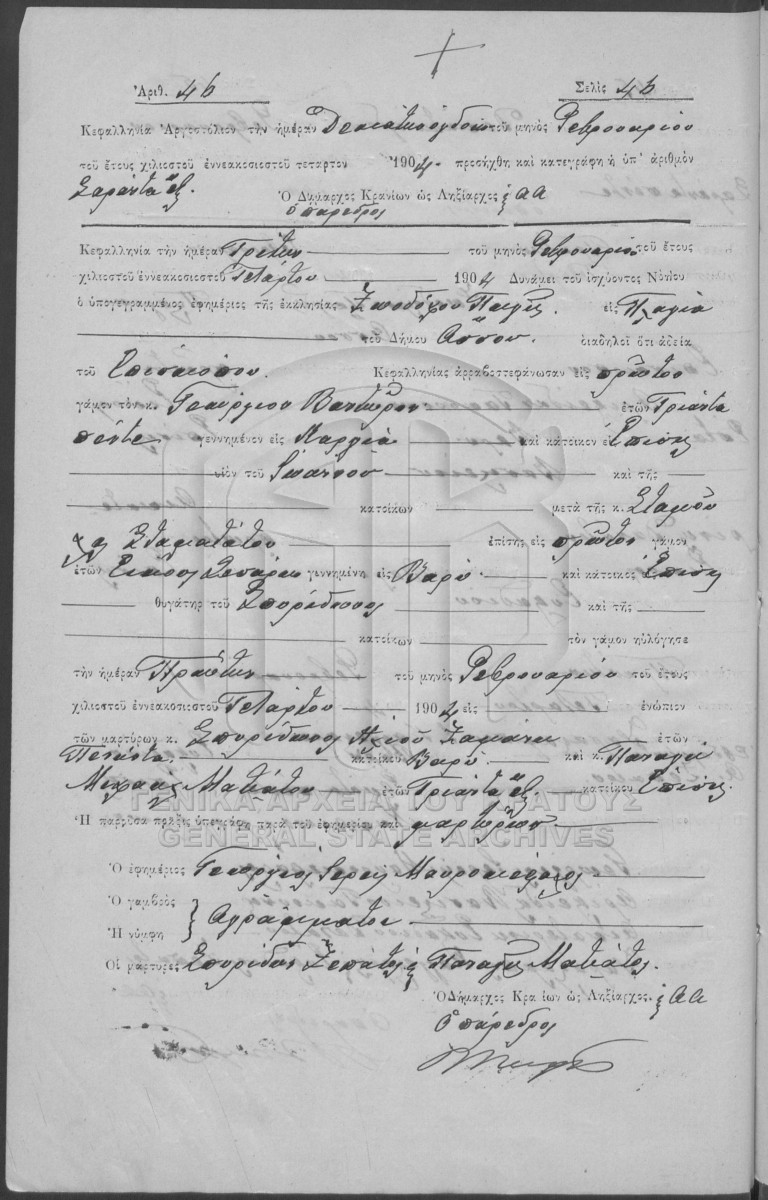 Ἀριθ. 46 Σελὶς 46
Κεφαλληνία Ἀργοστόλιον τὴν ἡμέραν Δεκάτην ὀγδόην τοῦ μηνὸς Φεβρουαρίου
τοῦ ἔτους χιλιοστοῦ ἐννεακοσιοστοῦ τετάρτου 1904 προσήχθη καὶ κατεγράφη ἡ ὑπ' ἀριθμὸν
Σαράντα ἕξ. Ὁ Δήμαρχος Κρανίων ὡς Ληξίαρχος
ὁ πάρεδρος
Κεφαλληνία τὴν ἡμέραν Τρίτην τοῦ μηνὸς Φεβρουαρίου τοῦ ἔτους
χιλιοστοῦ ἐννεακοσιοστοῦ Τετάρτου 1904 Δυνάμει τοῦ ἰσχύοντος Νόμου
ὁ ὑπογεγραμμένος ἐφημέριος τῆς ἐκκλησίας εἰς
τοῦ Δήμου Ἄσσου. διαδηλοῖ ὅτι ἀδείᾳ
τοῦ Ἐπισκόπου. Κεφαλληνίας ἀρραβοστεφάνωσαν εἰς πρῶτον
γάμον τὸν κ. Γεώργιον ἐτῶν Τριάντα
πέντε γεννημένον εἰς καὶ κάτοικον εἰς
υἱὸν τοῦ Ἰωάννου καὶ τῆς
κατοίκων μετὰ τῆς κ. Σταμού
λα Σταματάτου ἐπίσης εἰς πρῶτον γάμον
ἐτῶν Εἴκοσι τεσσάρων γεννημένη εἰς Βαρὺ καὶ κάτοικος
θυγάτηρ τοῦ Σπυρίδωνος καὶ τῆς
κατοίκων τὸν γάμον ηὐλόγησε
τὴν ἡμέραν Πρώτην τοῦ μηνὸς Φεβρουαρίου τοῦ ἔτους
χιλιοστοῦ ἐννεακοσιοστοῦ Τετάρτου 1904 εἰς ἐνώπιον
τῶν μαρτύρων κ. Σπυρίδωνος ἐτῶν
Πενήντα κατοίκου Βαρύ. καὶ κ. Παναγῆ
ἐτῶν Τριάντα ἕξ. κατοίκου
Ἡ παροῦσα πρᾶξις ὑπεγράφη παρὰ τοῦ ἐφημερίου καὶ μαρτύρων
ΓΕΝΙΚΑ ΑΡΧΕΙΑ ΤΟΥ ΚΡΑΤΟΥΣ
GENERAL STATE ARCHIVES
Ὁ ἐφημέριος Γεώργιος Ἱερεὺς Μαυροκέφαλος
Ὁ γαμβρὸς
Ἡ νύμφη } Ἀγράμματοι
Οἱ μάρτυρες Σπυρίδων Παναγῆς
Ὁ Δήμαρχος Κρανίων ὡς Ληξίαρχος.
Ὁ πάρεδρος